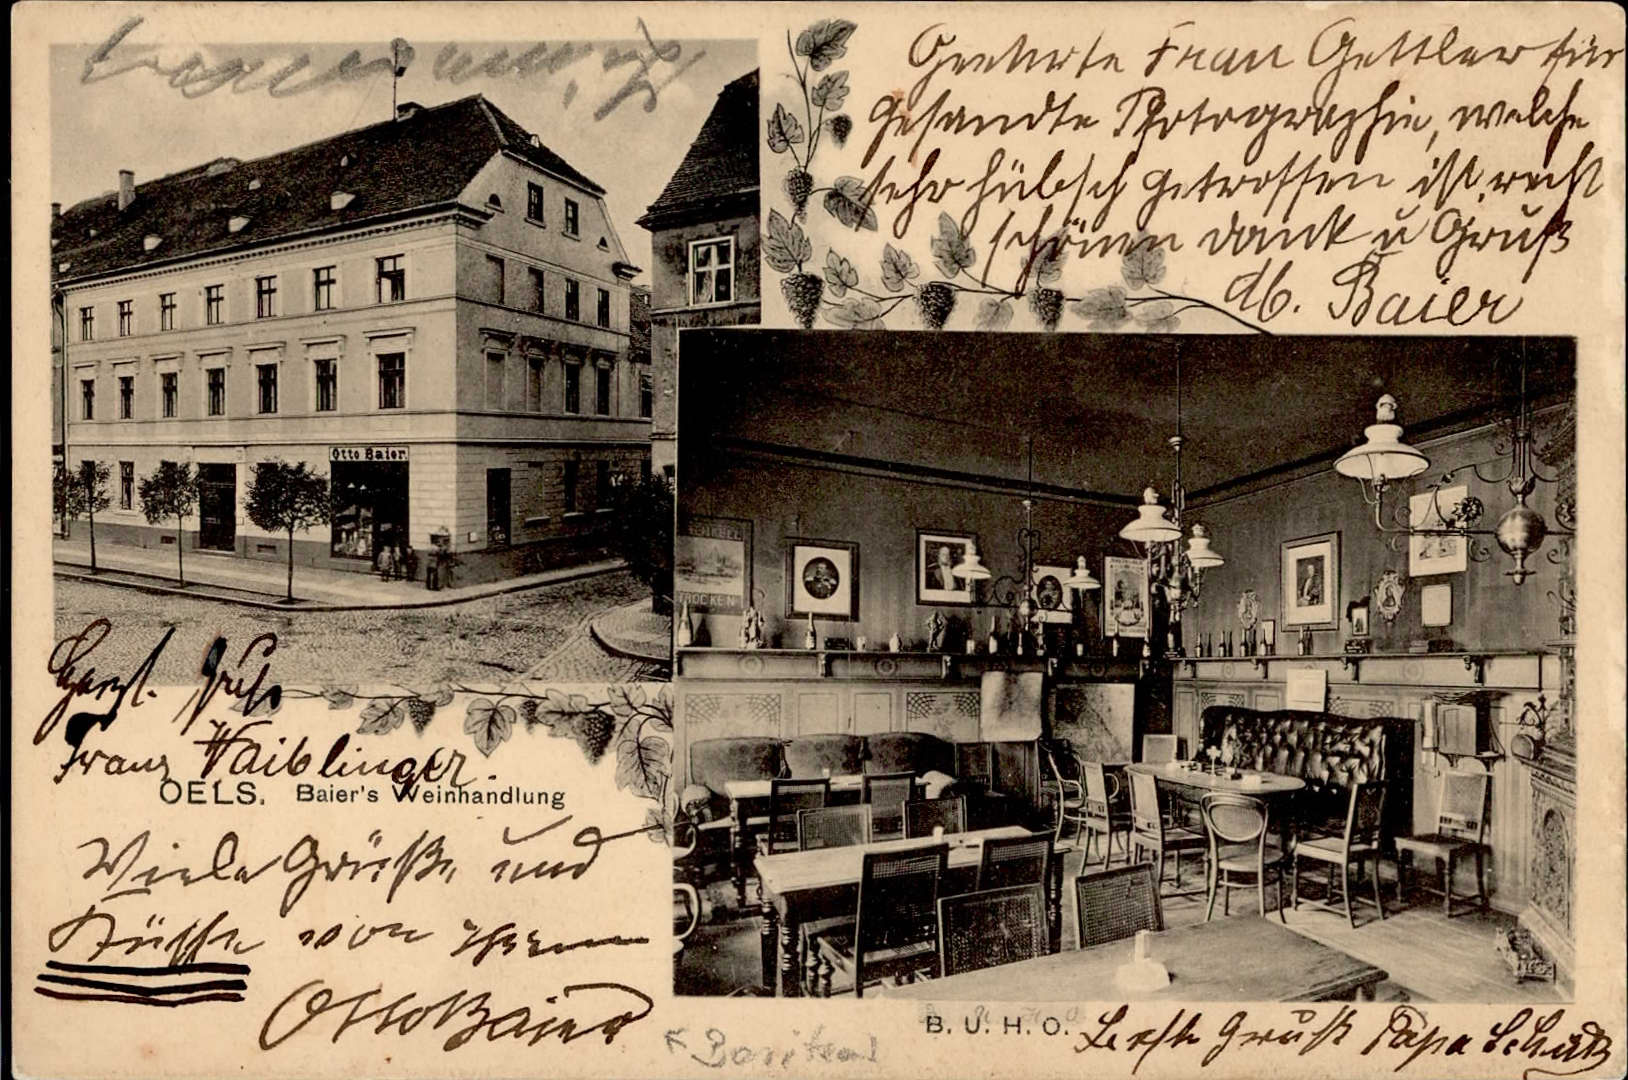 Geehrte Frau Gettler für
gesandte Photographie, welche
sehr hübsch getroffen ist, recht
schönen dank u Gruß
Baier
Otto Baier.
TROCKEN
Herzl. Gruß
Franz Waiblinger.
OELS. Baier's Weinhandlung
Viele Grüße und
Küsse von Ihrem
Otto Baier
B. U. H. O.
Beste Gruß Papa Schütz